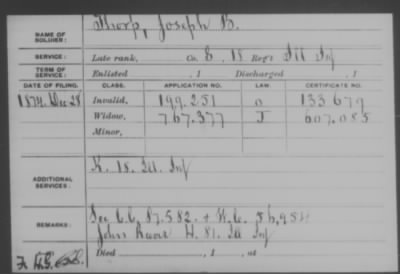 NAME OF SOLDIER: Thorp, Joseph B.
SERVICE: Late rank, Co. E, 18 Reg't Ill Inf
TERM OF SERVICE: Enlisted , 1 Discharged , 1
DATE OF FILING. CLASS. APPLICATION NO. LAW. CERTIFICATE NO.
1874, Dec 28 Invalid, 199.251 133679
Widow, 767.377 J 607.085
Minor,
ADDITIONAL SERVICES: K. 18. Ill. Inf
REMARKS: See C.C. 87,582. + W.C.
John H. 81. Ill Inf
Died , 1 , at